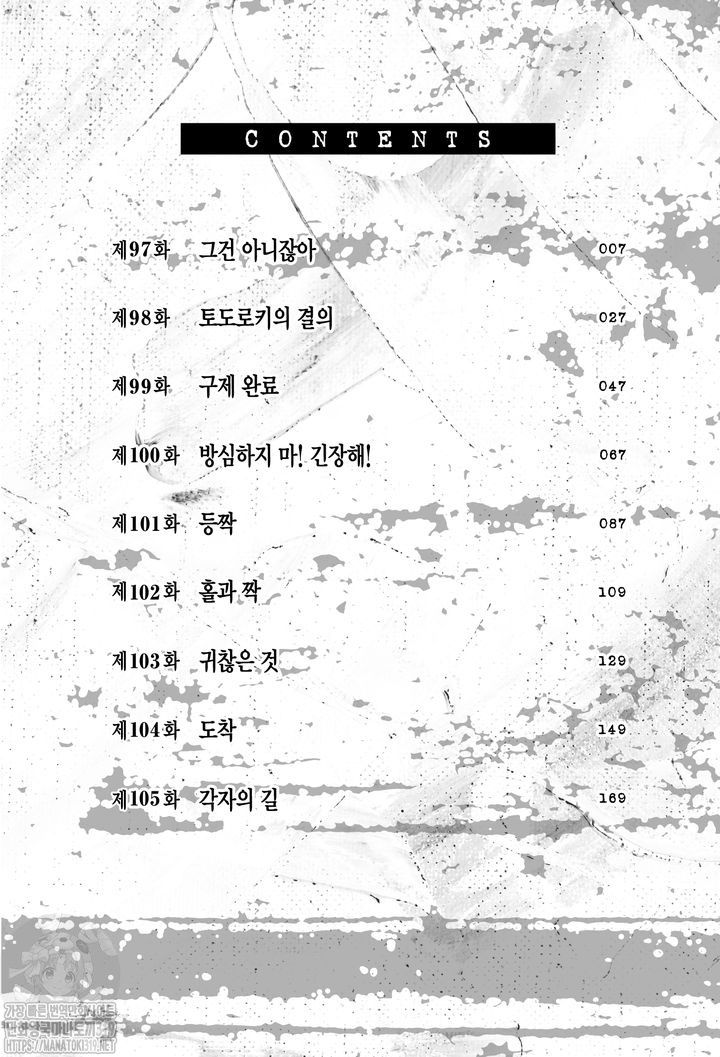 CONTENTS
제97화 그건 아니잖아 007
제98화 토도로키의 결의 027
제99화 구제 완료 047
제100화 방심하지 마! 긴장해! 067
제101화 등짝 087
제102화 홀과 짝 109
제103화 귀찮은 것 129
제104화 도착 149
제105화 각자의 길 169
가장 빠른 번역만화사이트
만화왕국마나토끼319
HTTPS://MANATOKI319.NET